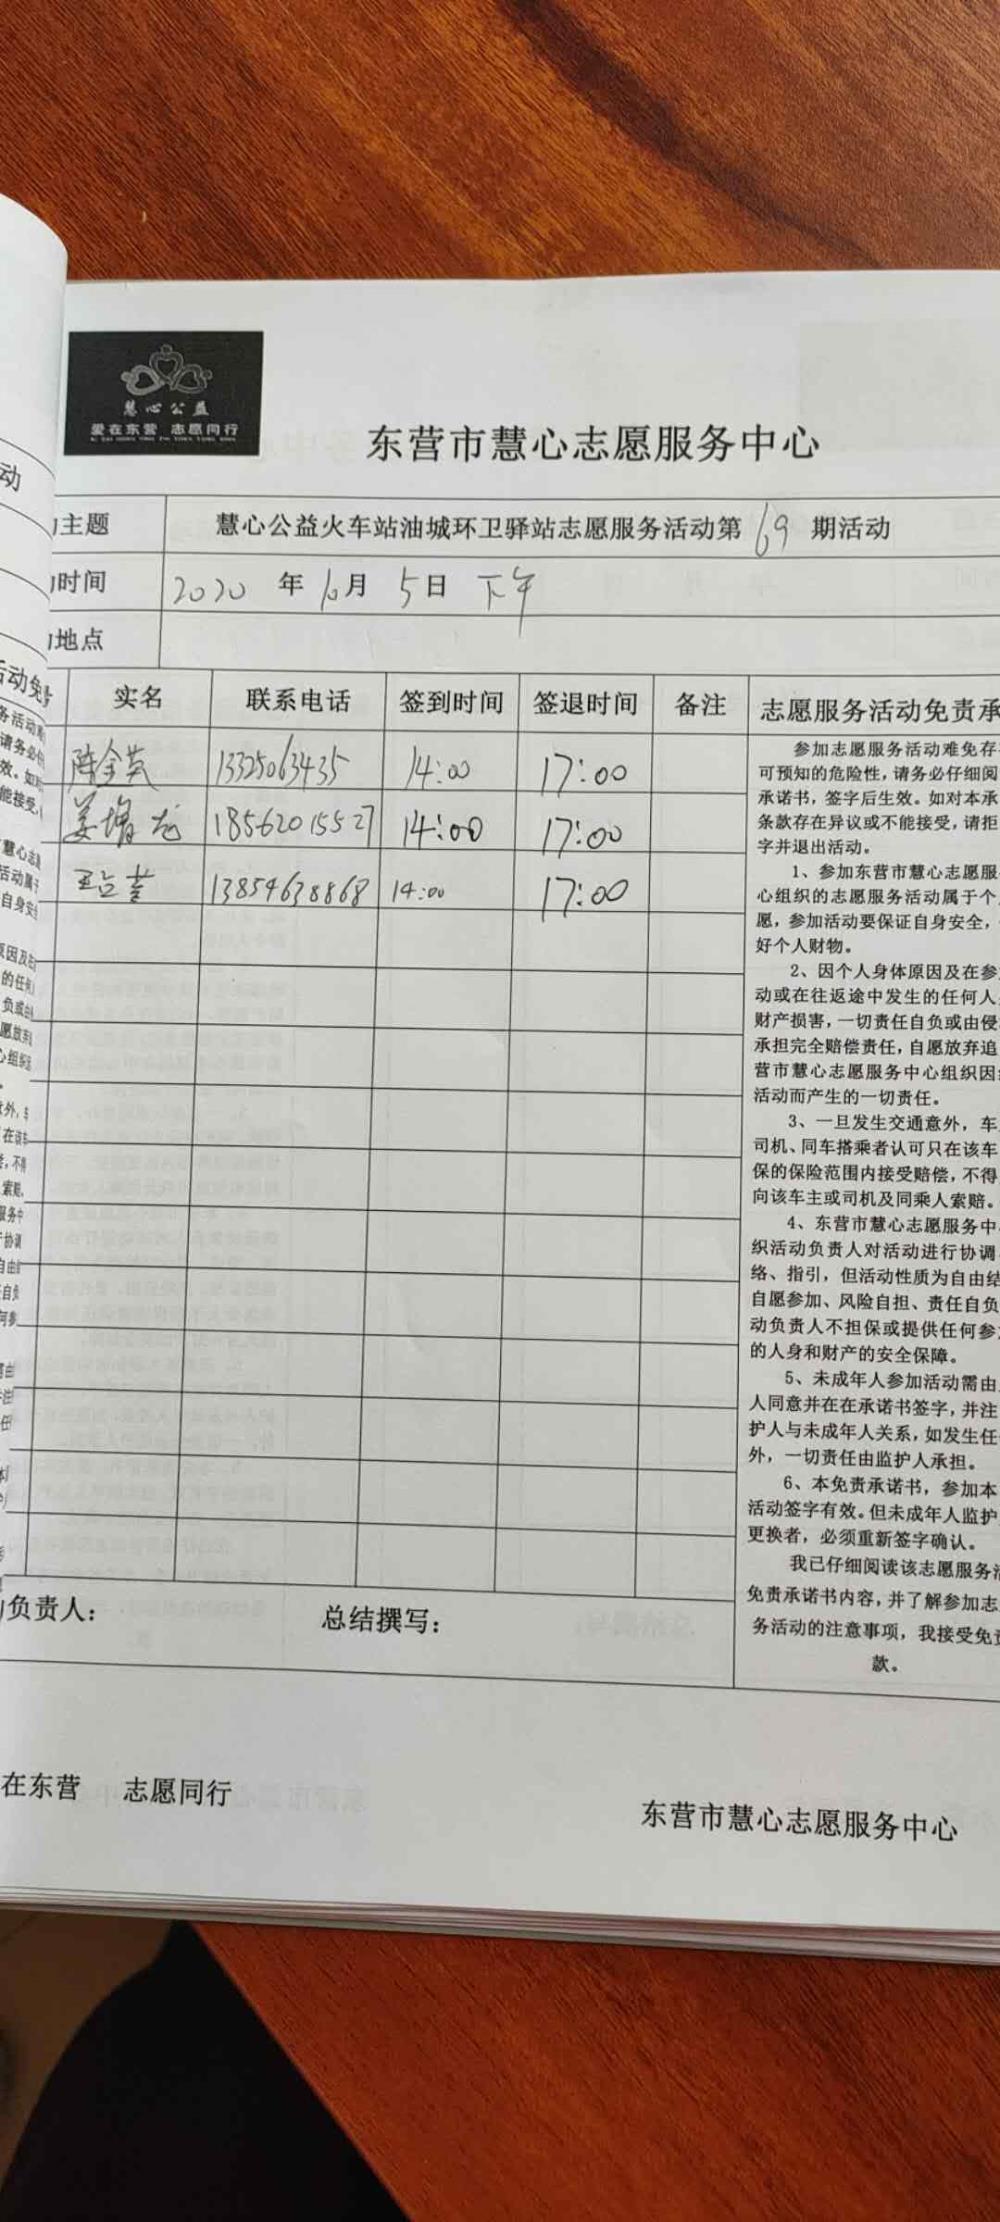 慧心公益
爱在东营 志愿同行
东营市慧心志愿服务中心
主题 慧心公益火车站油城环卫驿站志愿服务活动第69期活动
时间 2020年10月5日 下午
地点
实名 联系电话 签到时间 签退时间 备注 志愿服务活动免责承
陈金英 13325063435 14:00 17:00
姜增龙 18562015527 14:00 17:00
13854638868 14:00 17:00
参加志愿服务活动难免存
可预知的危险性，请务必仔细阅
承诺书，签字后生效。如对本承
条款存在异议或不能接受，请拒
字并退出活动。
1、参加东营市慧心志愿服
心组织的志愿服务活动属于个
愿，参加活动要保证自身安全，
好个人财物。
2、因个人身体原因及在参
动或在往返途中发生的任何人
财产损害，一切责任自负或由侵
承担完全赔偿责任，自愿放弃追
营市慧心志愿服务中心组织因
活动而产生的一切责任。
3、一旦发生交通意外，车
司机、同车搭乘者认可只在该车
保的保险范围内接受赔偿，不得
向该车主或司机及同乘人索赔。
4、东营市慧心志愿服务中
织活动负责人对活动进行协调
络、指引，但活动性质为自由结
自愿参加、风险自担、责任自负
动负责人不担保或提供任何参
的人身和财产的安全保障。
5、未成年人参加活动需由
人同意并在在承诺书签字，并注
护人与未成年人关系，如发生任
外，一切责任由监护人承担。
6、本免责承诺书，参加本
活动签字有效。但未成年人监护
更换者，必须重新签字确认。
我已仔细阅读该志愿服务活
免责承诺书内容，并了解参加志
务活动的注意事项，我接受免责
款。
负责人： 总结撰写：
在东营 志愿同行
东营市慧心志愿服务中心